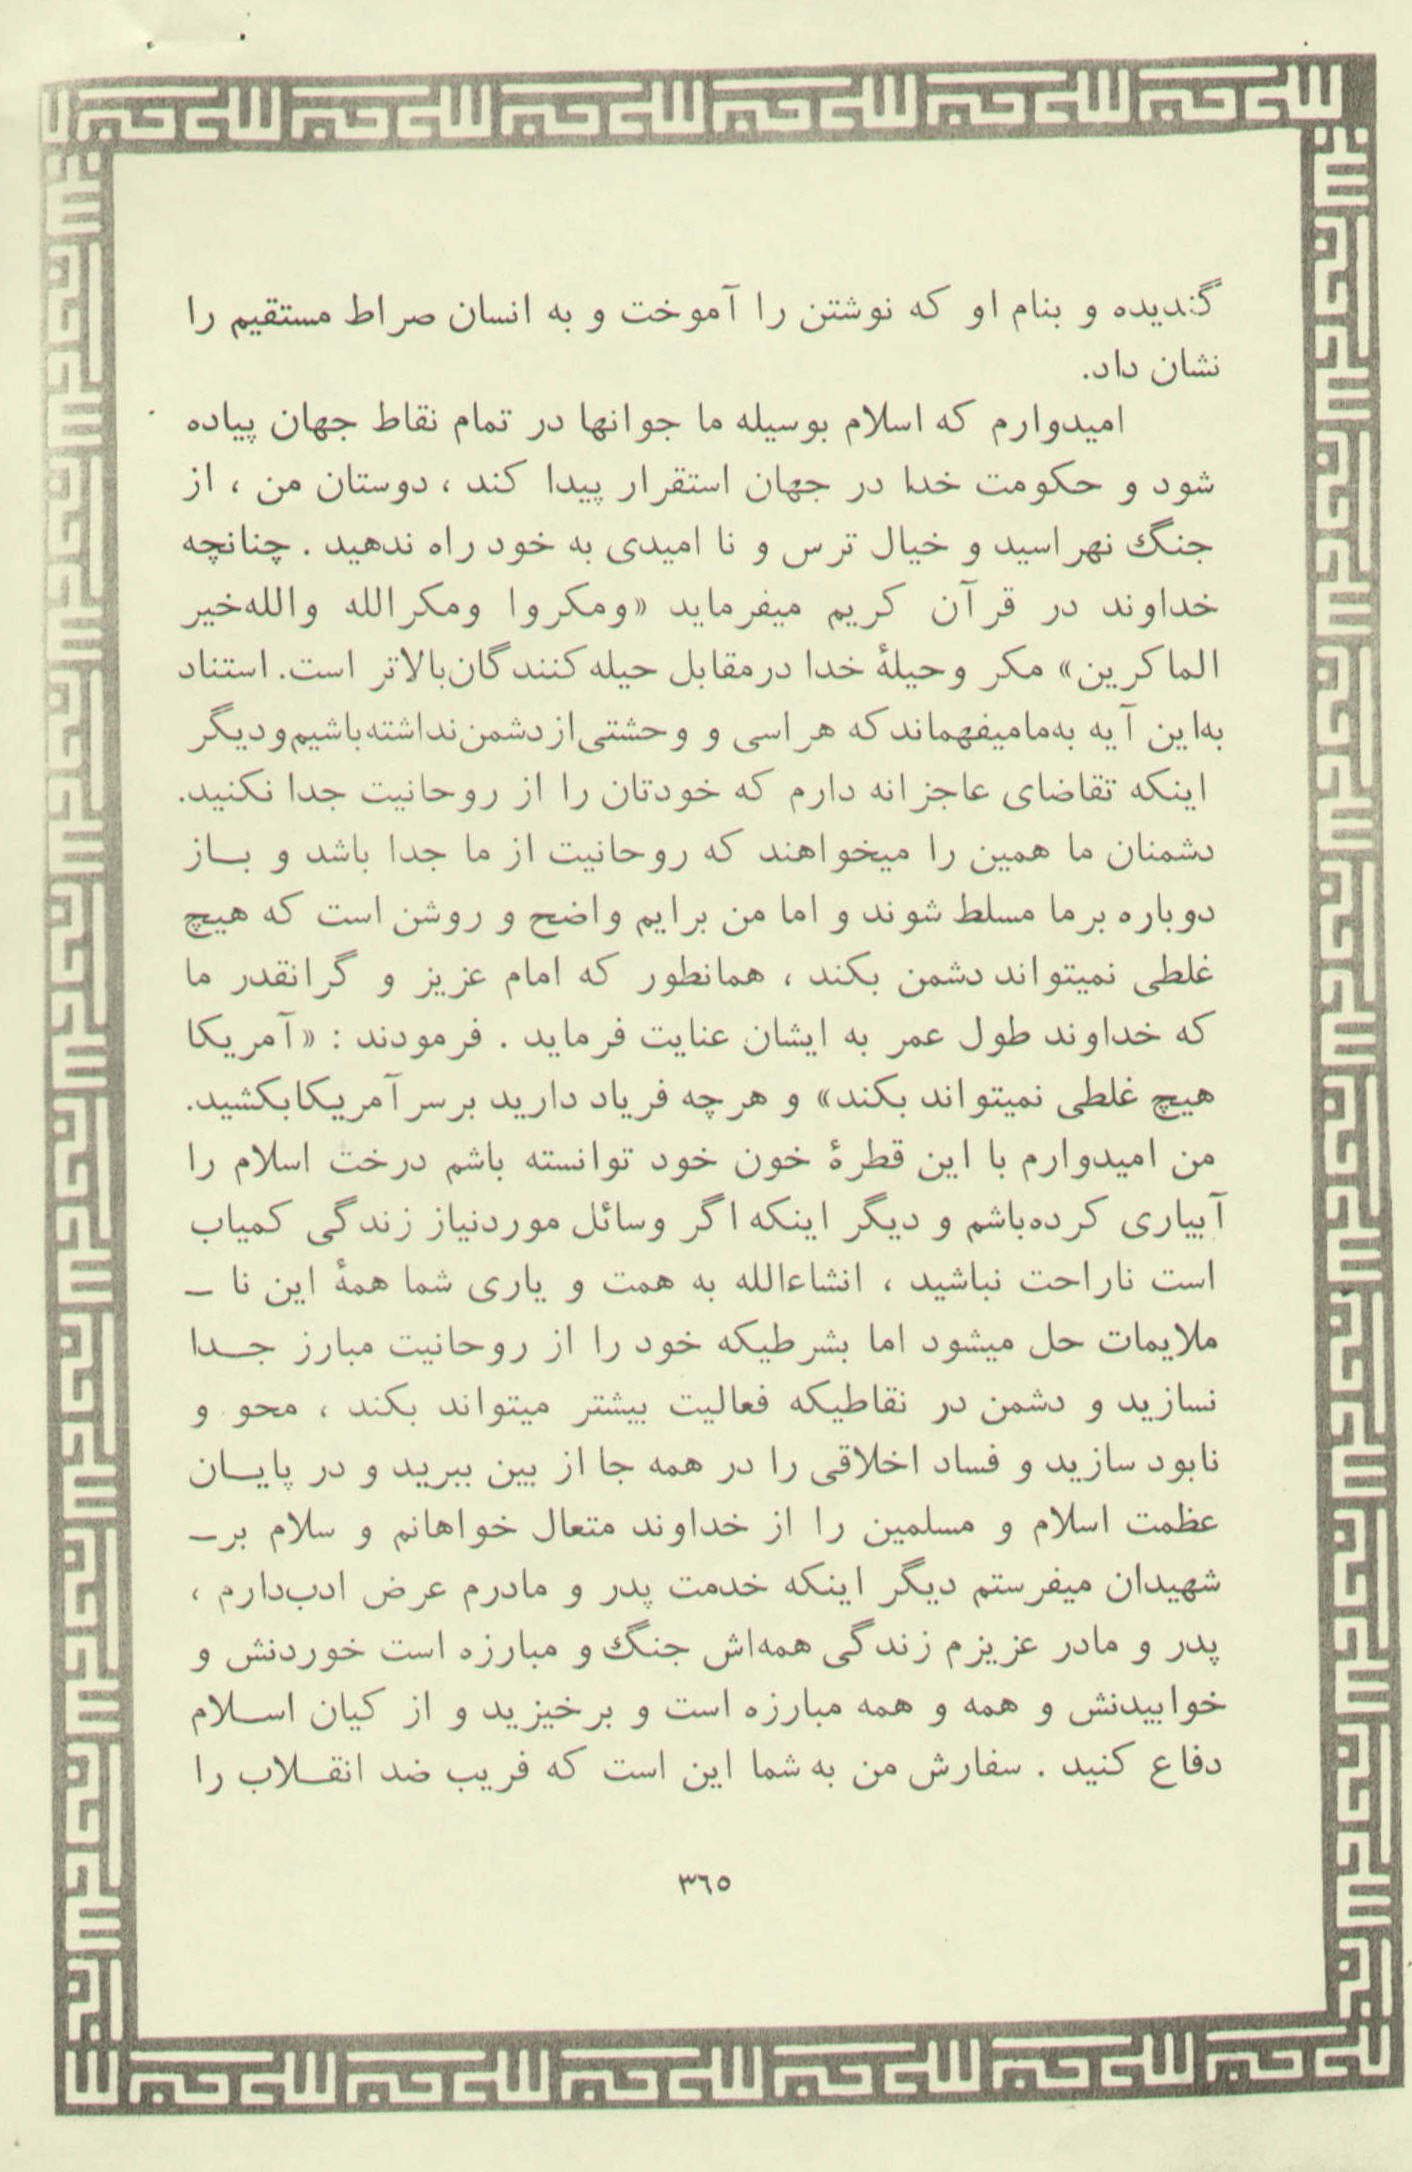 گندیده و بنام او که نوشتن را آموخت و به انسان صراط مستقیم را
نشان داد.
امیدوارم که اسلام بوسیله ما جوانها در تمام نقاط جهان پیاده
شود و حکومت خدا در جهان استقرار پیدا کند ، دوستان من ، از
جنگ نهراسید و خیال ترس و نا امیدی به خود راه ندهید . چنانچه
خداوند در قرآن کریم میفرماید «ومکروا ومکرالله والله‌خیر
الماکرین» مکر وحیلهٔ خدا درمقابل حیله‌کنندگان‌بالاتر است. استناد
به‌این آیه به‌مامیفهماند‌که هراسی و وحشتی‌ازدشمن‌نداشته‌باشیم‌ودیگر
اینکه تقاضای عاجزانه دارم که خودتان را از روحانیت جدا نکنید.
دشمنان ما همین را میخواهند که روحانیت از ما جدا باشد و بــاز
دوباره برما مسلط شوند و اما من برایم واضح و روشن است که هیچ
غلطی نمیتواند دشمن بکند ، همانطور که امام عزیز و گرانقدر ما
که خداوند طول عمر به ایشان عنایت فرماید . فرمودند : «آمریکا
هیچ غلطی نمیتواند بکند» و هرچه فریاد دارید برسرآمریکابکشید.
من امیدوارم با این قطرهٔ خون خود توانسته باشم درخت اسلام را
آبیاری کرده‌باشم و دیگر اینکه اگر وسائل موردنیاز زندگی کمیاب
است ناراحت نباشید ، انشاءالله به همت و یاری شما همهٔ این نا ـ
ملایمات حل میشود اما بشرطیکه خود را از روحانیت مبارز جــدا
نسازید و دشمن در نقاطیکه فعالیت بیشتر میتواند بکند ، محو و
نابود سازید و فساد اخلاقی را در همه جا از بین ببرید و در پایــان
عظمت اسلام و مسلمین را از خداوند متعال خواهانم و سلام برـ
شهیدان میفرستم دیگر اینکه خدمت پدر و مادرم عرض ادب‌دارم ،
پدر و مادر عزیزم زندگی همه‌اش جنگ و مبارزه است خوردنش و
خوابیدنش و همه و همه مبارزه است و برخیزید و از کیان اســلام
دفاع کنید . سفارش من به شما این است که فریب ضد انقــلاب را
٣٦٥